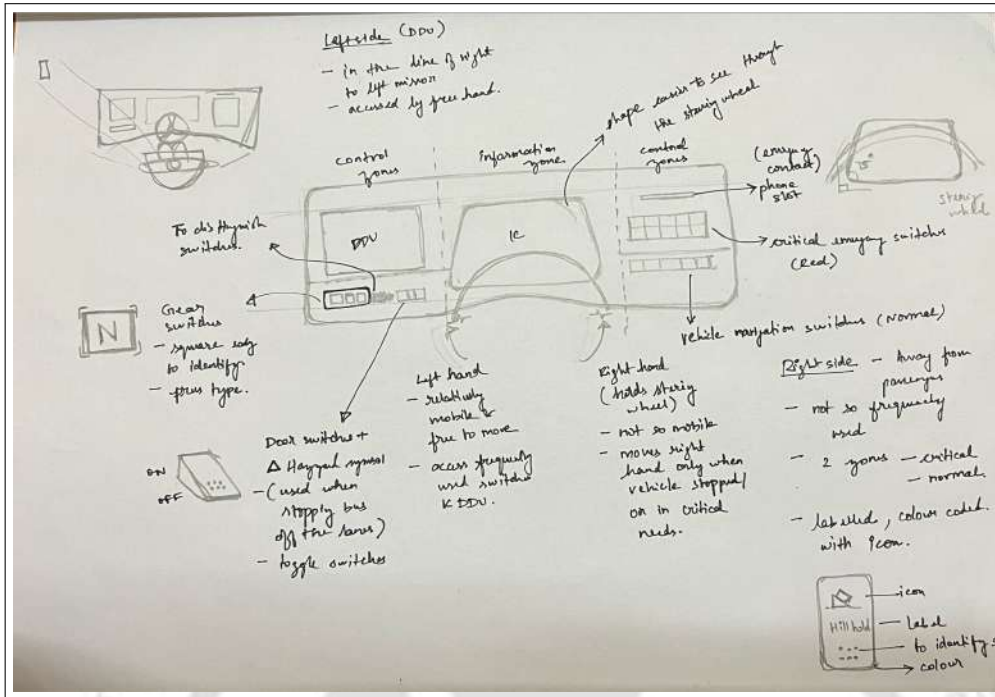 Leftside (DDU)
- in the line of sight
to left mirror
- accessed by free hand.
shape easier to see through
the stering wheel
control
zones
information
zone
control
zones
(emergy
contact)
phone
slot
75°
stering
wheel
To distinguish
switches.
DDU
IC
critical emergy switches
(Red)
vehicle navigation switches (Normal)
N
Gear
switches
- square
to identify
- press type.
ON
OFF
Door switches +
Δ Hazzard symbol
- (used when
stopping bus
off the lanes)
- toggle switches
Left hand
- relatively
mobile &
free to move
- access frequently
used switches
& DDU.
Right hand
(holds stering
wheel)
- not so mobile
- moves right
hand only when
vehicle stopped/
or in critical
needs.
Right side - Away from
passenger
- not so frequently
used
- 2 zones - critical
- normal
- labelled, colour coded.
with icon.
Hill hold
icon
Label
to identify
colour